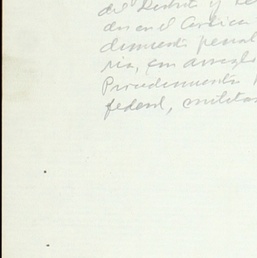 del Distrito y Te
dos en el Código
dimiento penal
ria, con arreglo
Procedimientos
federal, militar